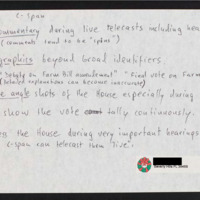 C-Span
commentary during live telecasts including hear
(comments tend to be "spin")
graphics beyond broad identifiers.
"Debate on Farm Bill amendment" "Final vote on Farm
(detailed explanations can become inaccurate)
e angle shots of the House especially during
show the vote tally continuously.
the House during very important hearings
C-Span can telecast them "live".